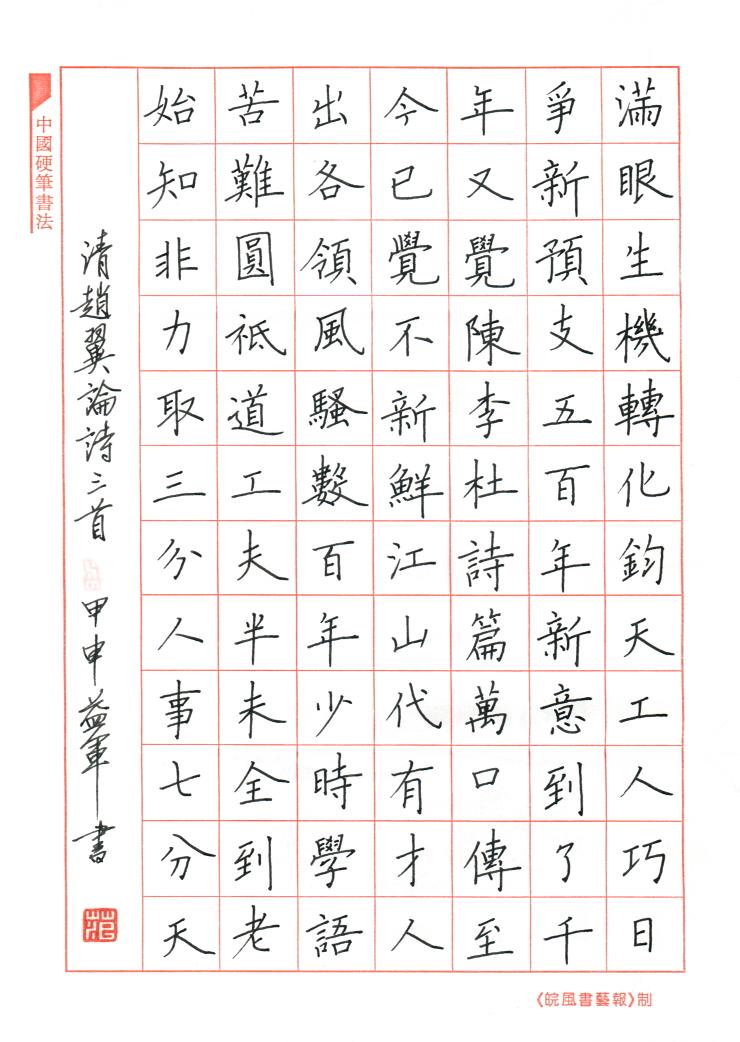 中國硬筆書法
滿眼生機轉化鈞天工人巧日
爭新預支五百年新意到了千
年又覺陳李杜詩篇萬口傳至
今已覺不新鮮江山代有才人
出各領風騷數百年少時學語
苦難圓祗道工夫半未全到老
始知非力取三分人事七分天
清趙翼論詩三首
甲申益軍書
《皖風書藝報》制